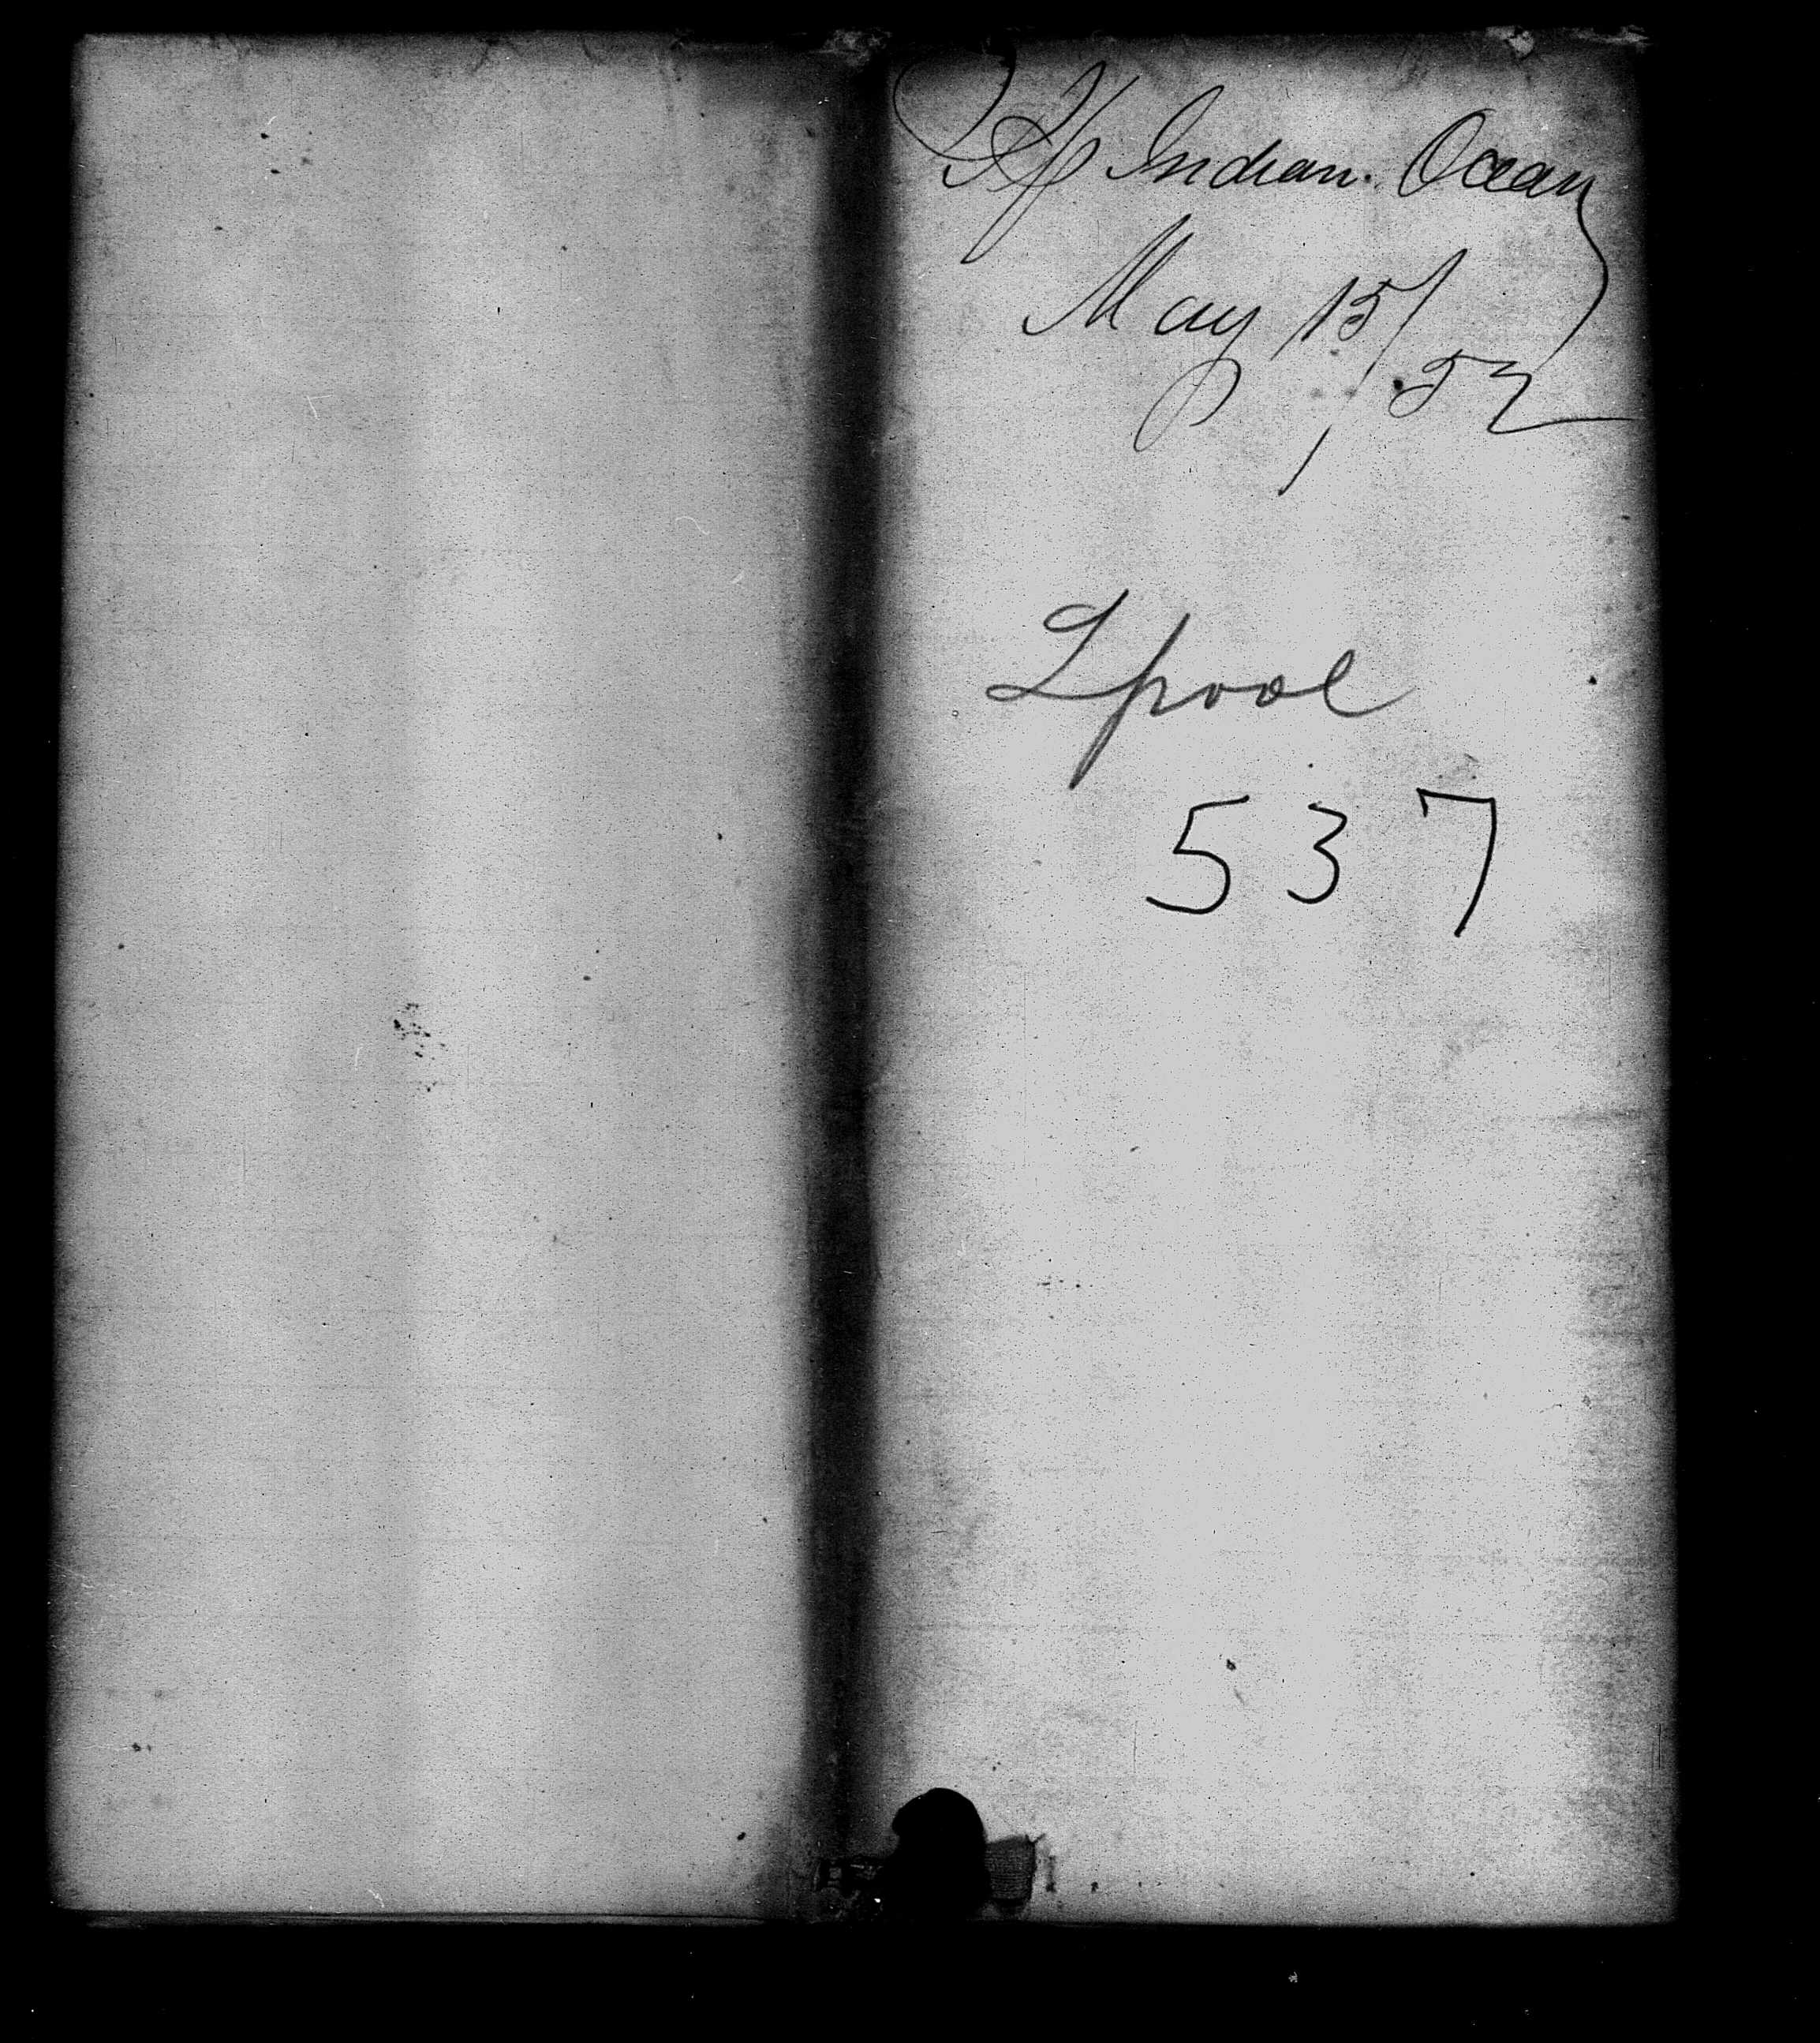 S/p Indian Ocean
May 15/
52
Lpool
537